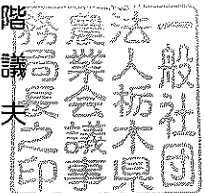 一般社団
法人栃木県
農業会議事
務局長之印
階議末